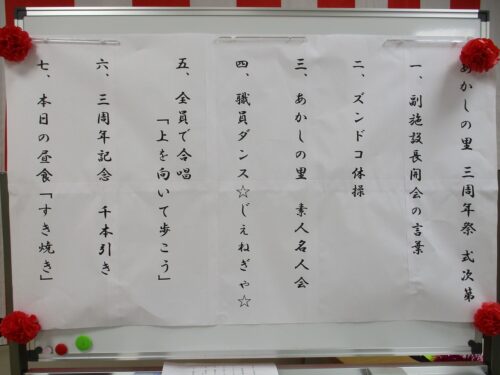 あかしの里 三周年祭 式次第
一、副施設長開会の言葉
二、ズンドコ体操
三、あかしの里 素人名人会
四、職員ダンス☆じぇねぎゃ☆
五、全員で合唱
「上を向いて歩こう」
六、三周年記念 千本引き
七、本日の昼食「すき焼き」